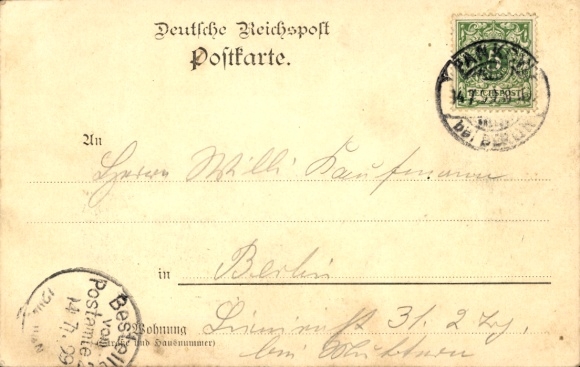 Deutsche Reichspost
Postkarte.
PANKOW
14.7.99
bei BERLIN
An
Herrn Willi Kaufmann
in Berlin
Bestellt
vom
Postamte
14.7.99
Wohnung Linienst 31. 2 Trp.
(Straße und Hausnummer)
bei